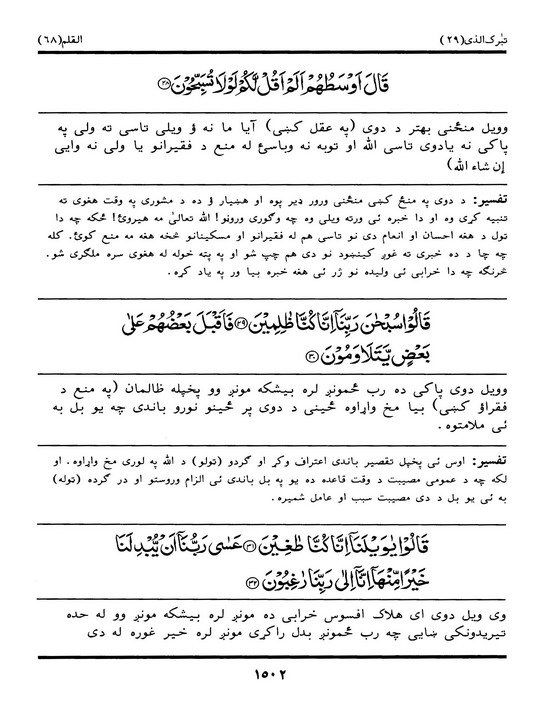 تبٰرک الذی(۲۹) القلم(۶۸)
قَالَ اَوۡسَطُهُمۡ اَلَمۡ اَقُلۡ لَّكُمۡ لَوۡلَا تُسَبِّحُوۡنَ ۲۸
وویل منځنی بهتر د دوی (په عقل کښی) آیا ما نه ؤ ویلی تاسی ته ولی په
پاکی نه یادوی تاسی الله او توبه نه وباسئ له منع د فقیرانو یا ولی نه وایی
إن شاء الله)
تفسیر: د دوی په منځ کښی منځنی ورور ډیر پوه او هښیار ؤ ده د مشوری په وقت هغوی ته
تنبیه کړی وه او دا خبره ئی ورته ویلی وه چه وګوری ورونو! الله تعالیٰ مه هیروئ! ځکه چه دا
تول د هغه احسان او انعام دی نو تاسی هم له فقیرانو او مسکینانو څخه هغه مه منع کوئ. کله
چه چا د ده خبری ته غوږ کینښود نو دی هم چپ شو او په پته خوله له هغوی سره ملګری شو.
څرنګه چه دا خرابی ئی ولیده نو ژر ئی هغه خبره بیا ور په یاد کړه.
قَالُوۡا سُبۡحٰنَ رَبِّنَاۤ اِنَّا كُنَّا ظٰلِمِيۡنَ ۲۹ فَاَقۡبَلَ بَعۡضُهُمۡ عَلٰى
بَعۡضٍ يَّتَلَاوَمُوۡنَ ۳۰
وویل دوی پاکی ده رب ځمونږ لره بیشکه مونږ وو پخپله ظالمان (په منع د
فقراؤ کښی) بیا مخ واړاوه ځینی د دوی پر ځینو نورو باندی چه یو بل به
ئی ملامتوه.
تفسیر: اوس ئی پخپل تقصیر باندی اعتراف وکړ او ګردو (تولو) د الله په لوری مخ واړاوه. او
لکه چه د عمومی مصیبت د وقت قاعده ده یو په بل باندی ئی الزام وروستو او در ګرده (توله)
به ئی یو بل د دی مصیبت سبب او عامل شمیره.
قَالُوۡا يٰوَيۡلَنَاۤ اِنَّا كُنَّا طٰغِيۡنَ ۳۱ عَسٰى رَبُّنَاۤ اَنۡ يُّبۡدِلَنَا
خَيۡرًا مِّنۡهَاۤ اِنَّاۤ اِلٰى رَبِّنَا رٰغِبُوۡنَ ۳۲
وی ویل دوی ای هلاک افسوس خرابی ده مونږ لره بیشکه مونږ وو له حده
تیریدونکی ښایی چه رب ځمونږ بدل راکړی مونږ لره خیر غوره له دی
۱۵۰۲